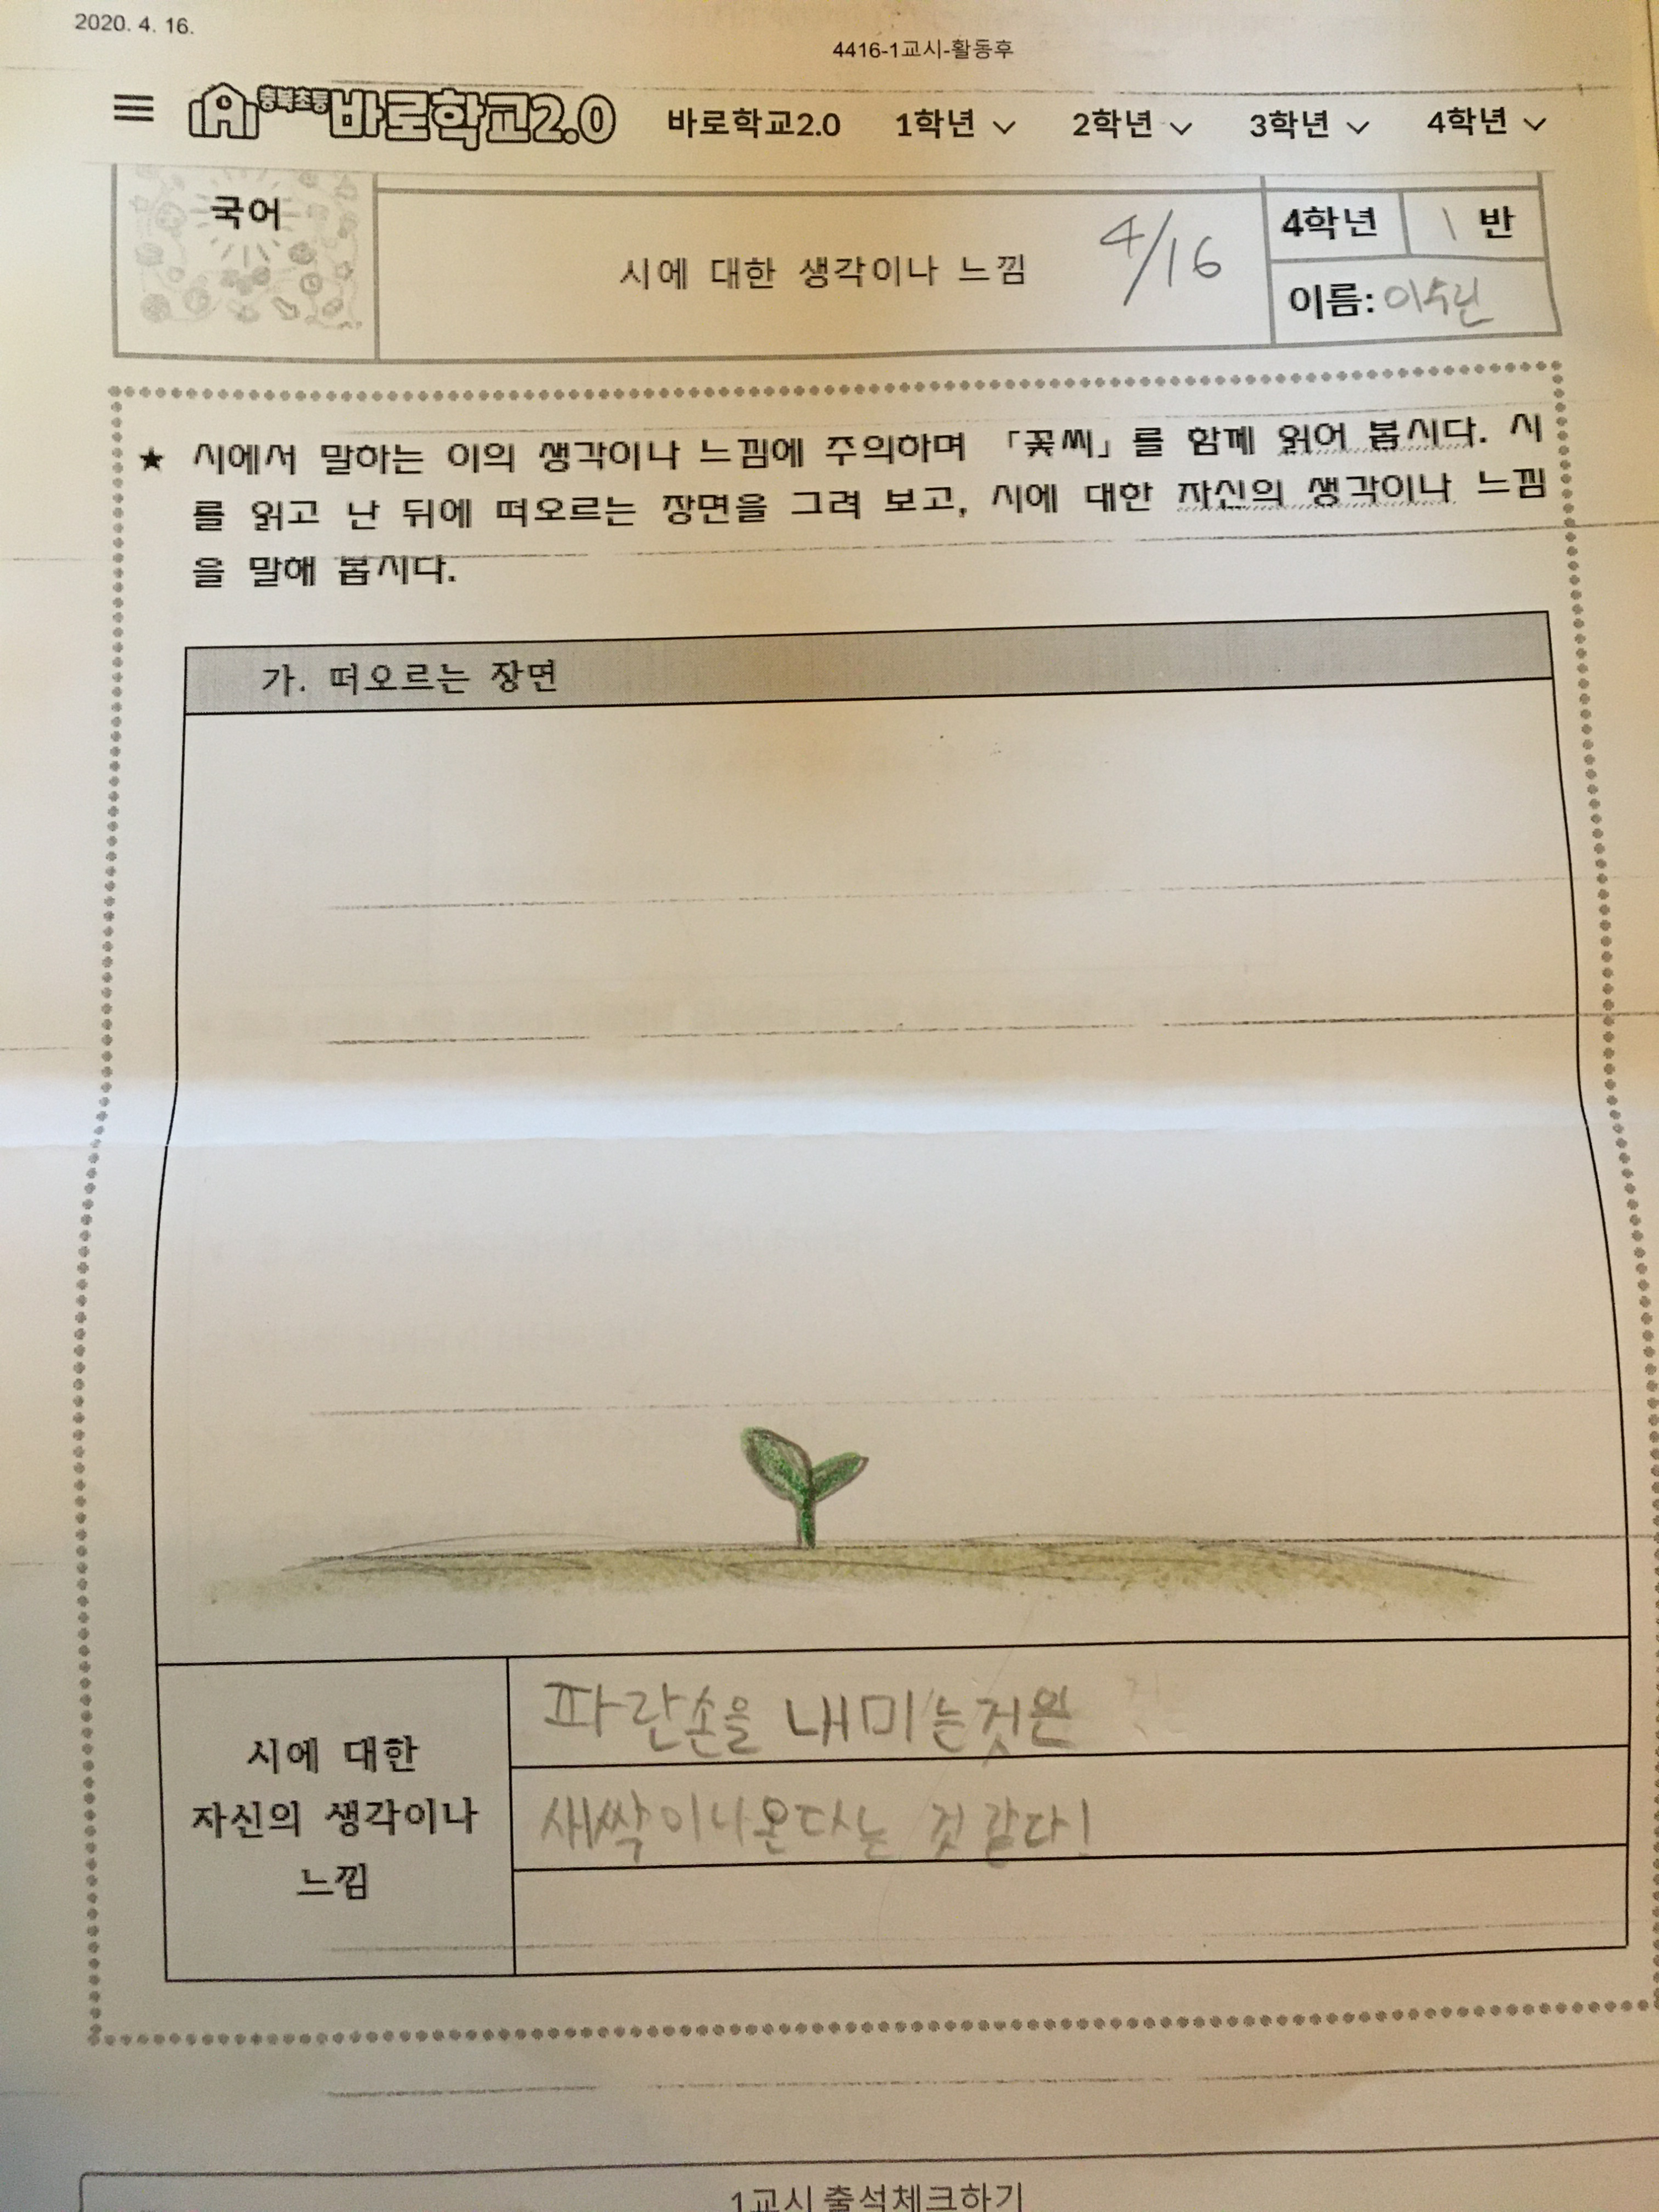 2020. 4. 16.
4416-1교시-활동후
충북초등 바로학교2.0 바로학교2.0 1학년 2학년 3학년 4학년
국어
시에 대한 생각이나 느낌 4/16
4학년 1 반
이름: 이수린
★ 시에서 말하는 이의 생각이나 느낌에 주의하며 「꽃씨」를 함께 읽어 봅시다. 시
를 읽고 난 뒤에 떠오르는 장면을 그려 보고, 시에 대한 자신의 생각이나 느낌
을 말해 봅시다.
가. 떠오르는 장면
시에 대한
자신의 생각이나
느낌
파란손을 내미는것은
새싹이나온다는 것 같다!
1교시 출석체크하기